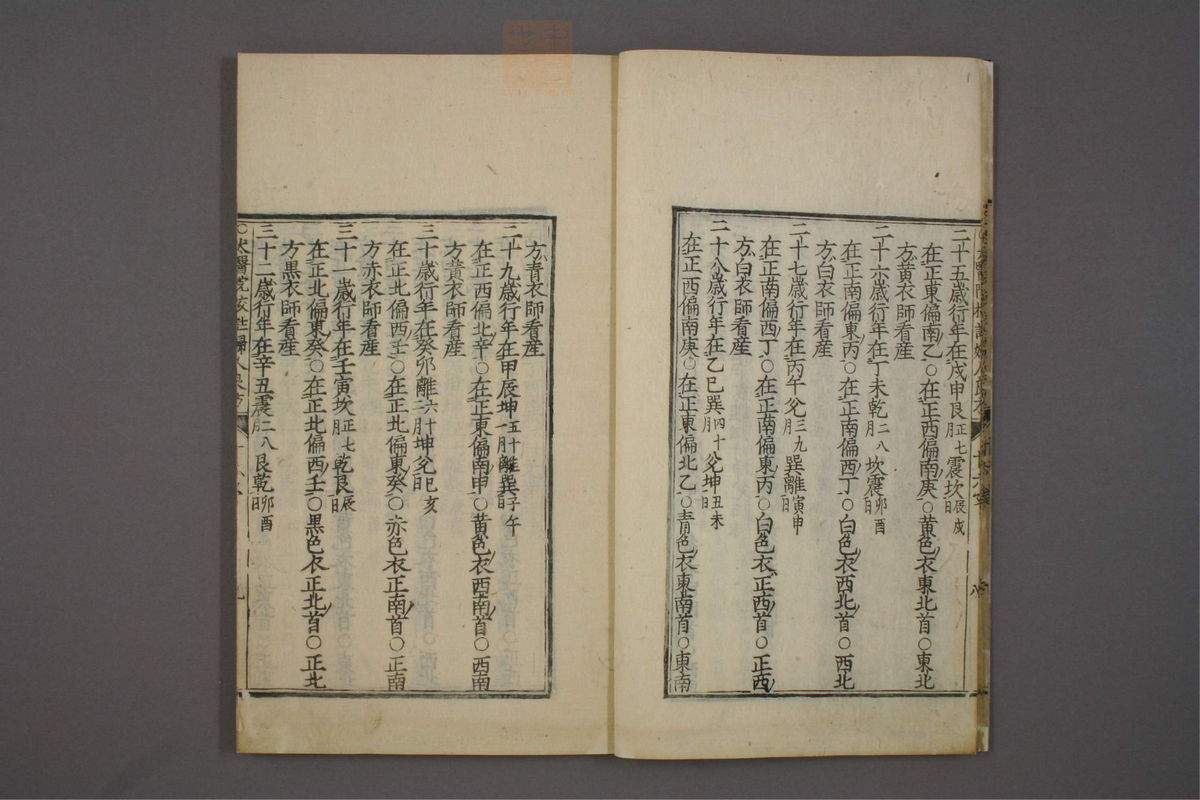 二十五歲行年在戊申艮正七月震坎辰戌日
在正東偏南乙○在正西偏南庚○黃色衣東北首○東北
方黃衣師看産
二十六歲行年在丁未乾二八月坎震卯酉日
在正南偏東丙○在正南偏西丁○白色衣西北首○西北
方白衣師看産
二十七歲行年在丙午兊三九月巽離寅申日
在正南偏西丁○在正南偏東丙○白色衣正西首○正西
方白衣師看産
二十八歲行年在乙巳巽四十月兊坤丑未日
在正西偏南庚○在正東偏北乙○青色衣東南首○東南
方青衣師看産
二十九歲行年在甲辰坤五十一月離巽子午日
在正西偏北辛○在正東偏南甲○黃色衣西南首○西南
方黃衣師看産
三十歲行年在癸卯離六十二月坤兊巳亥日
在正北偏西壬○在正北偏東癸○赤色衣正南首○正南
方赤衣師看産
三十一歲行年在壬寅坎正七月乾艮辰日
在正北偏東癸○在正北偏西壬○黒色衣正北首○正北
方黒衣師看産
三十二歲行年在辛丑震二八月艮乾卯酉日
○太醫院校註婦人良方